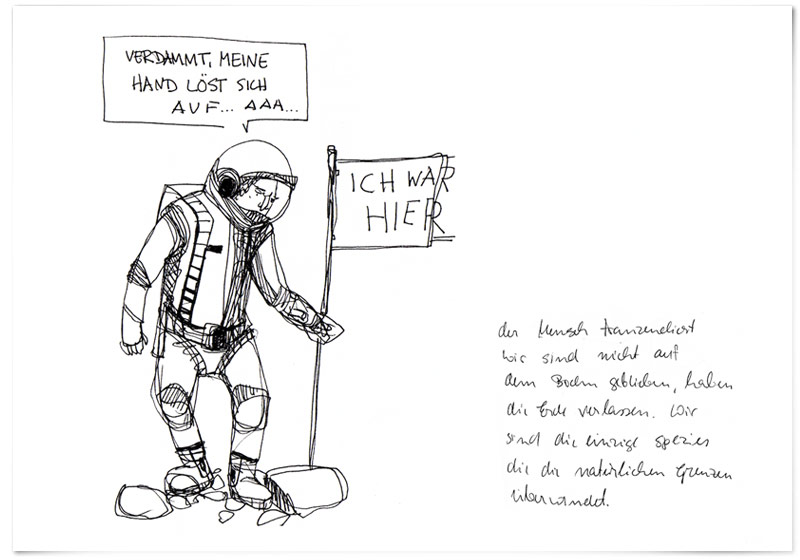 VERDAMMT, MEINE
HAND LÖST SICH
AUF... AAA...
ICH WAR
HIER
der Mensch tranzendiert
wir sind nicht auf
dem Boden geblieben, haben
die Erde verlassen. Wir
sind die einzige spezies
die die natürlichen Grenzen
überwindet.